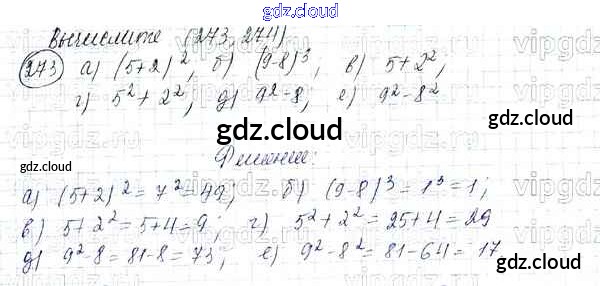 gdz.cloud
Вычислите (273, 274)
273 а) (5+2)², б) (9-8)³, в) 5+2²;
г) 5²+2², д) 9²-8, е) 9²-8²
gdz.cloud gdz.cloud gdz.cloud
Решение:
а) (5+2)²=7²=49; б) (9-8)³=1³=1;
в) 5+2²=5+4=9; г) 5²+2²=25+4=29
д) 9²-8=81-8=73; е) 9²-8²=81-64=17
gdz.cloud gdz.cloud